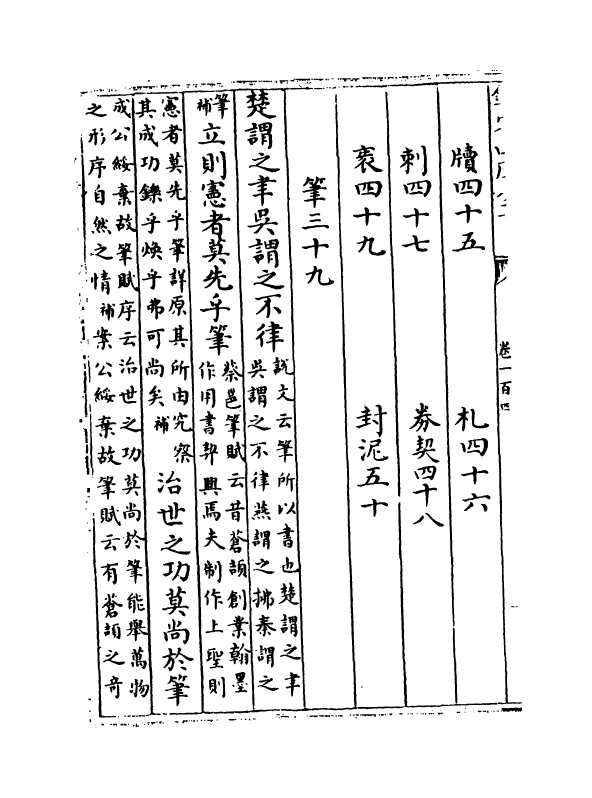 卷一百四
牘四十五 札四十六
刺四十七 券契四十八
袠四十九 封泥五十
筆三十九
楚謂之聿吳謂之不律 說文云筆所以書也楚謂之聿
吳謂之不律燕謂之拂秦謂之
筆
補
立則憲者莫先乎筆 蔡邕筆賦云昔蒼頡創業翰墨
作用書契興焉夫制作上聖則
憲者莫先乎筆詳原其所由究察
其成功鑠乎煥乎弗可尚矣補
治世之功莫尚於筆
成公綏棄故筆賦序云治世之功莫尚於筆能舉萬物
之形序自然之情補案公綏棄故筆賦云有蒼頡之奇